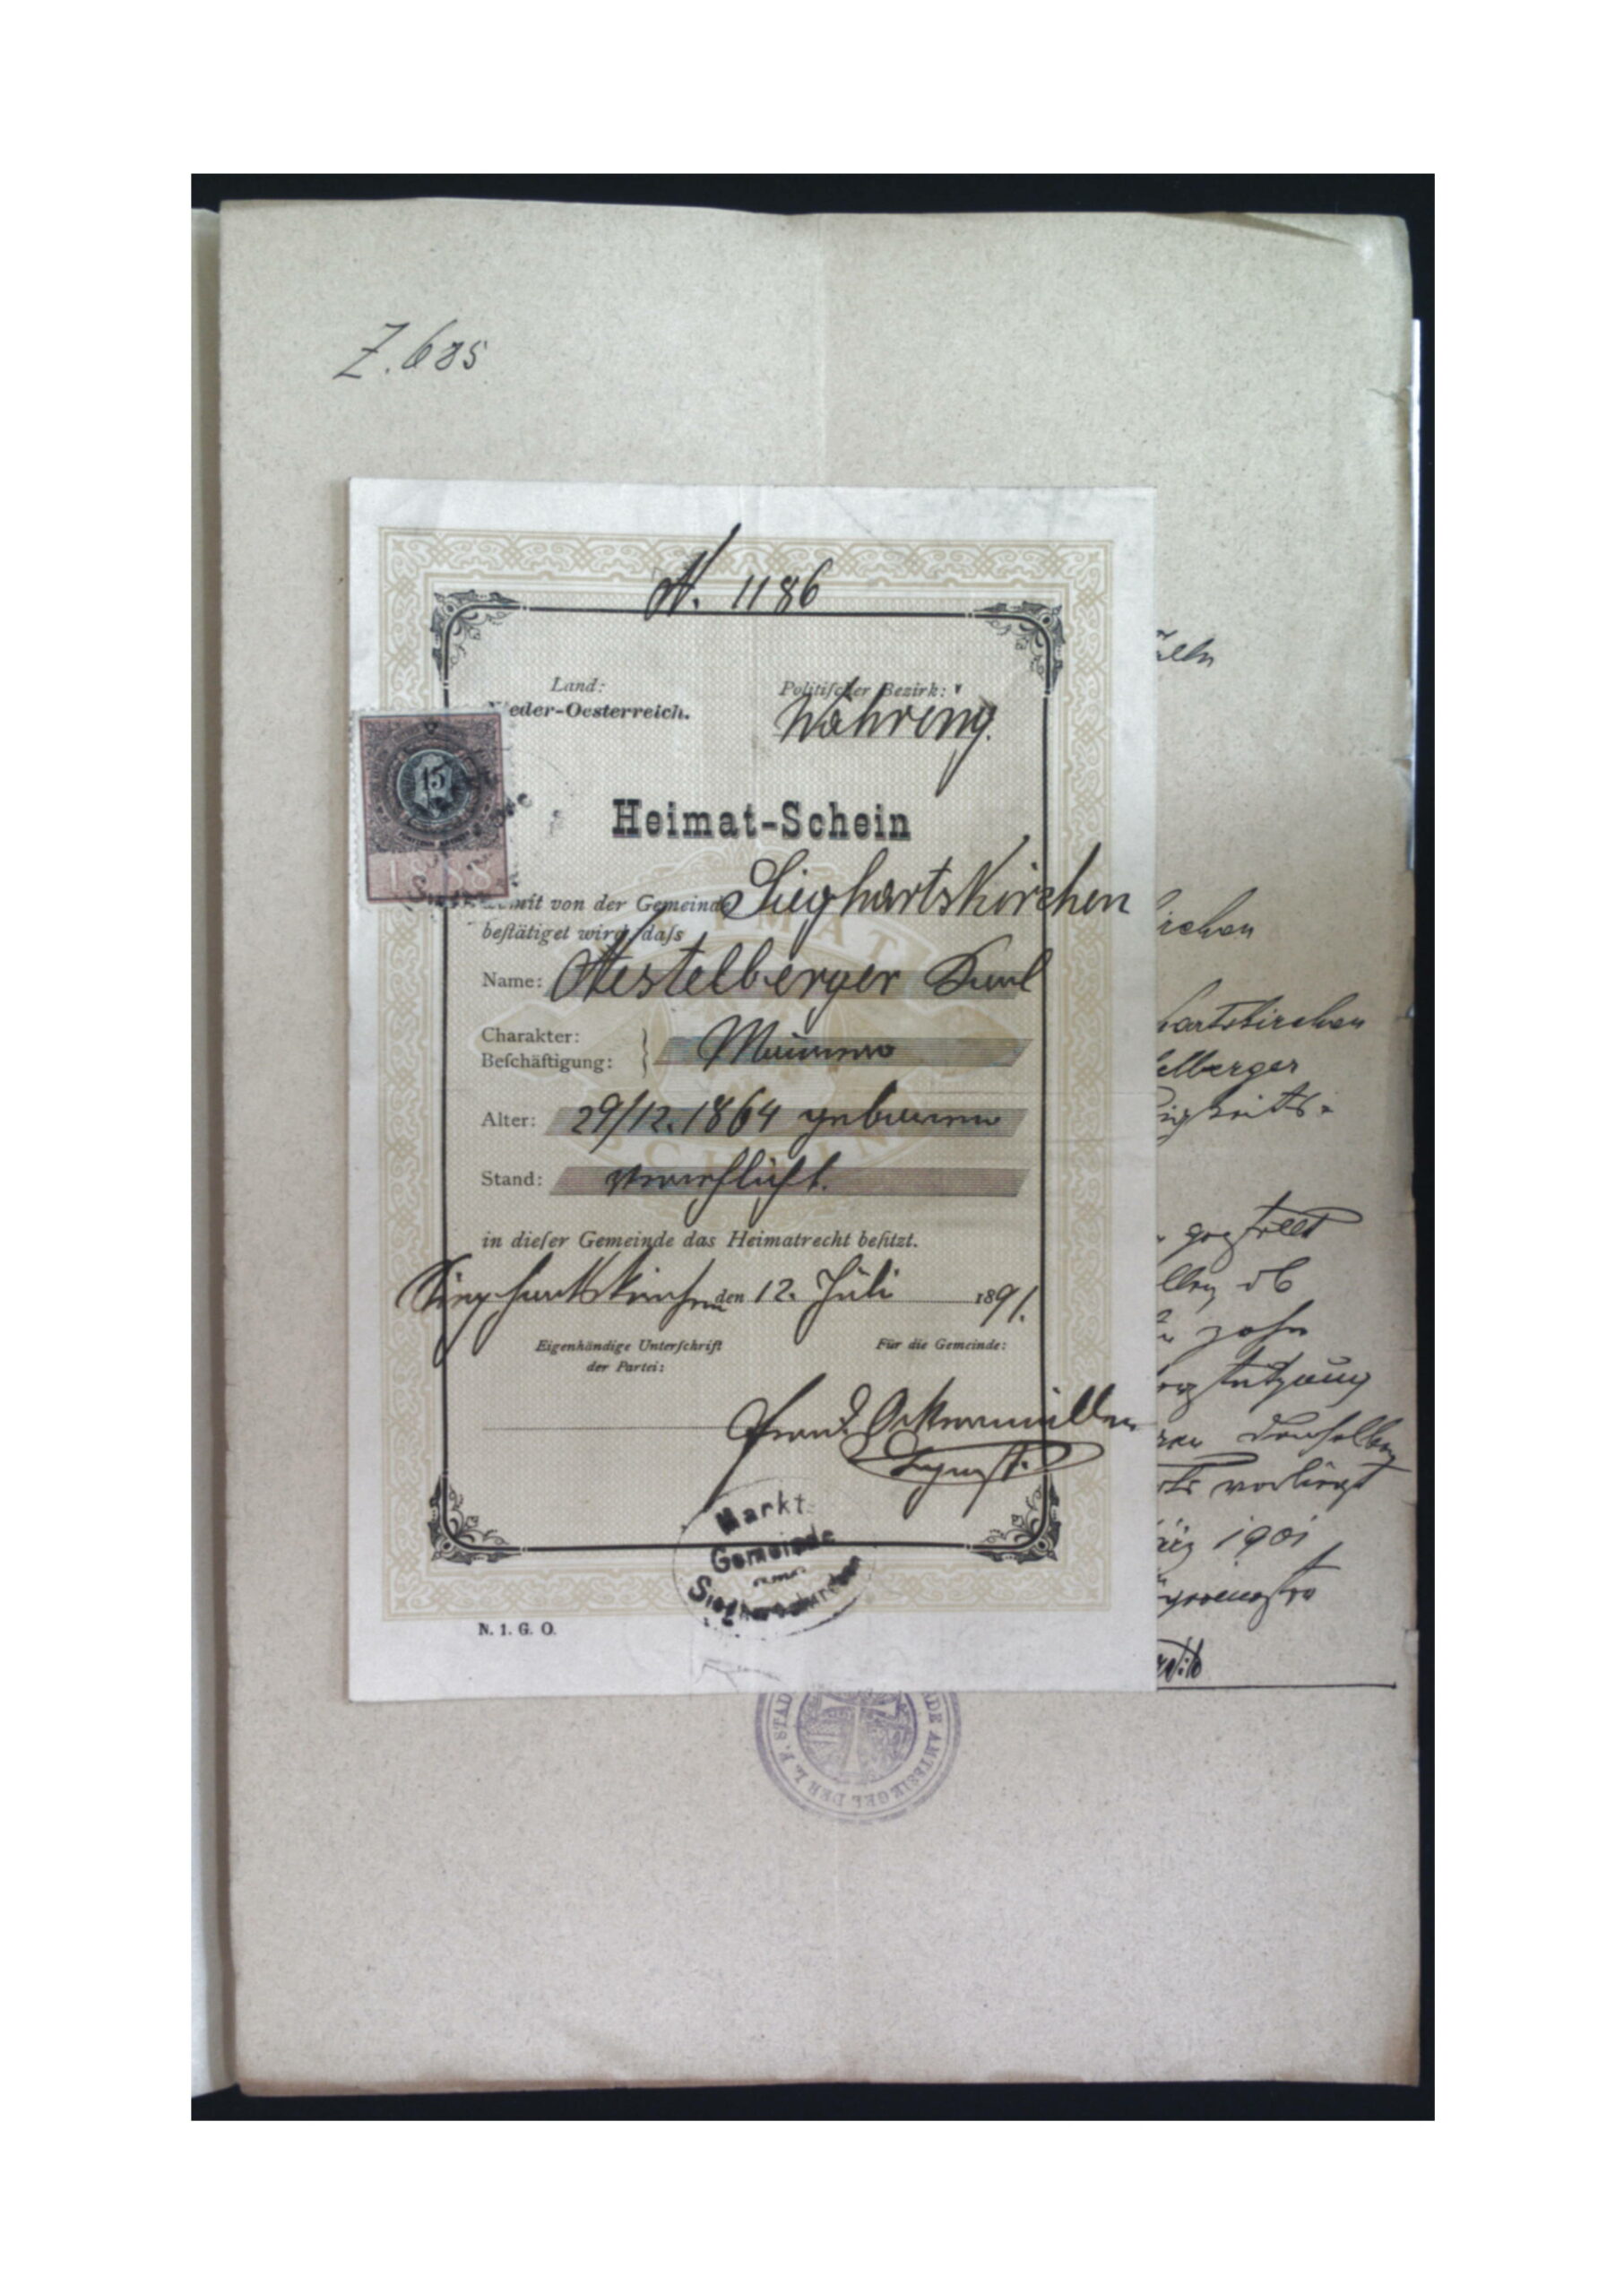 Z. 685
N. 1186
Land:
Nieder-Oesterreich.
Politiſcher Bezirk:
Währing.
15
1888
Heimat-Schein
womit von der Gemeinde Sieghartskirchen
beſtätiget wird, daſs
Name: Nestelberger Karl
Charakter:
Beſchäftigung: Maurer
Alter: 29/12. 1864 geboren
Stand: verehlicht.
in dieſer Gemeinde das Heimatrecht beſitzt.
Sieghartskirchen den 12. Juli 1891.
Eigenhändige Unterſchrift
der Partei:
Für die Gemeinde:
Franz Ackermüller
Bgmst.
Markt
Gemeinde
Sieghartskirchen
N. 1. G. O.
irchen
hartskirchen
elberger
igkeits-
gestellt
ob
derselben
vorliegt
ärz 1901
ürgermeister
AMTSSIEGEL DER L. F. STAD